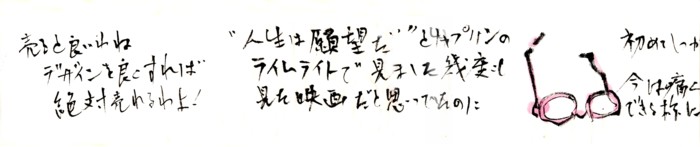 売ると良いわね
デザインを良くすれば
絶対売れるわよ!
"人生は願望だ"とチャップリンの
ライムライトで見ました幾度も
見た映画だと思っていたのに
初めて
今は痛く
できる様に